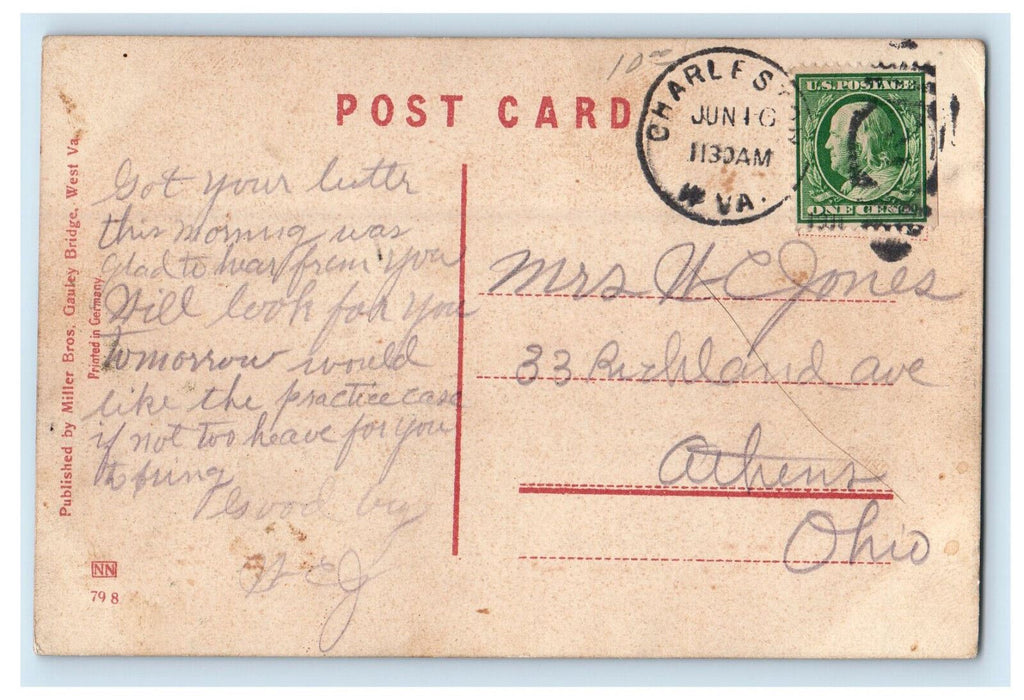 POST CARD
10
CHARLEST
JUN 16
1130AM
W. VA.
U.S. POSTAGE
ONE CENT
Got your letter
this morning was
glad to hear from you
Will look for you
tomorrow would
like the practice case
if not too heave for you
to bring
Good by
Mrs H C Jones
33 Richland ave
Athens
Ohio
Published by Miller Bros. Gauley Bridge, West Va.
Printed in Germany.
NN
79 8